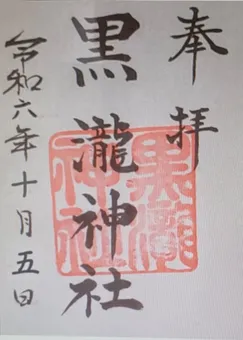 奉拝
黒瀧神社
令和六年十月五日
黒瀧
神社